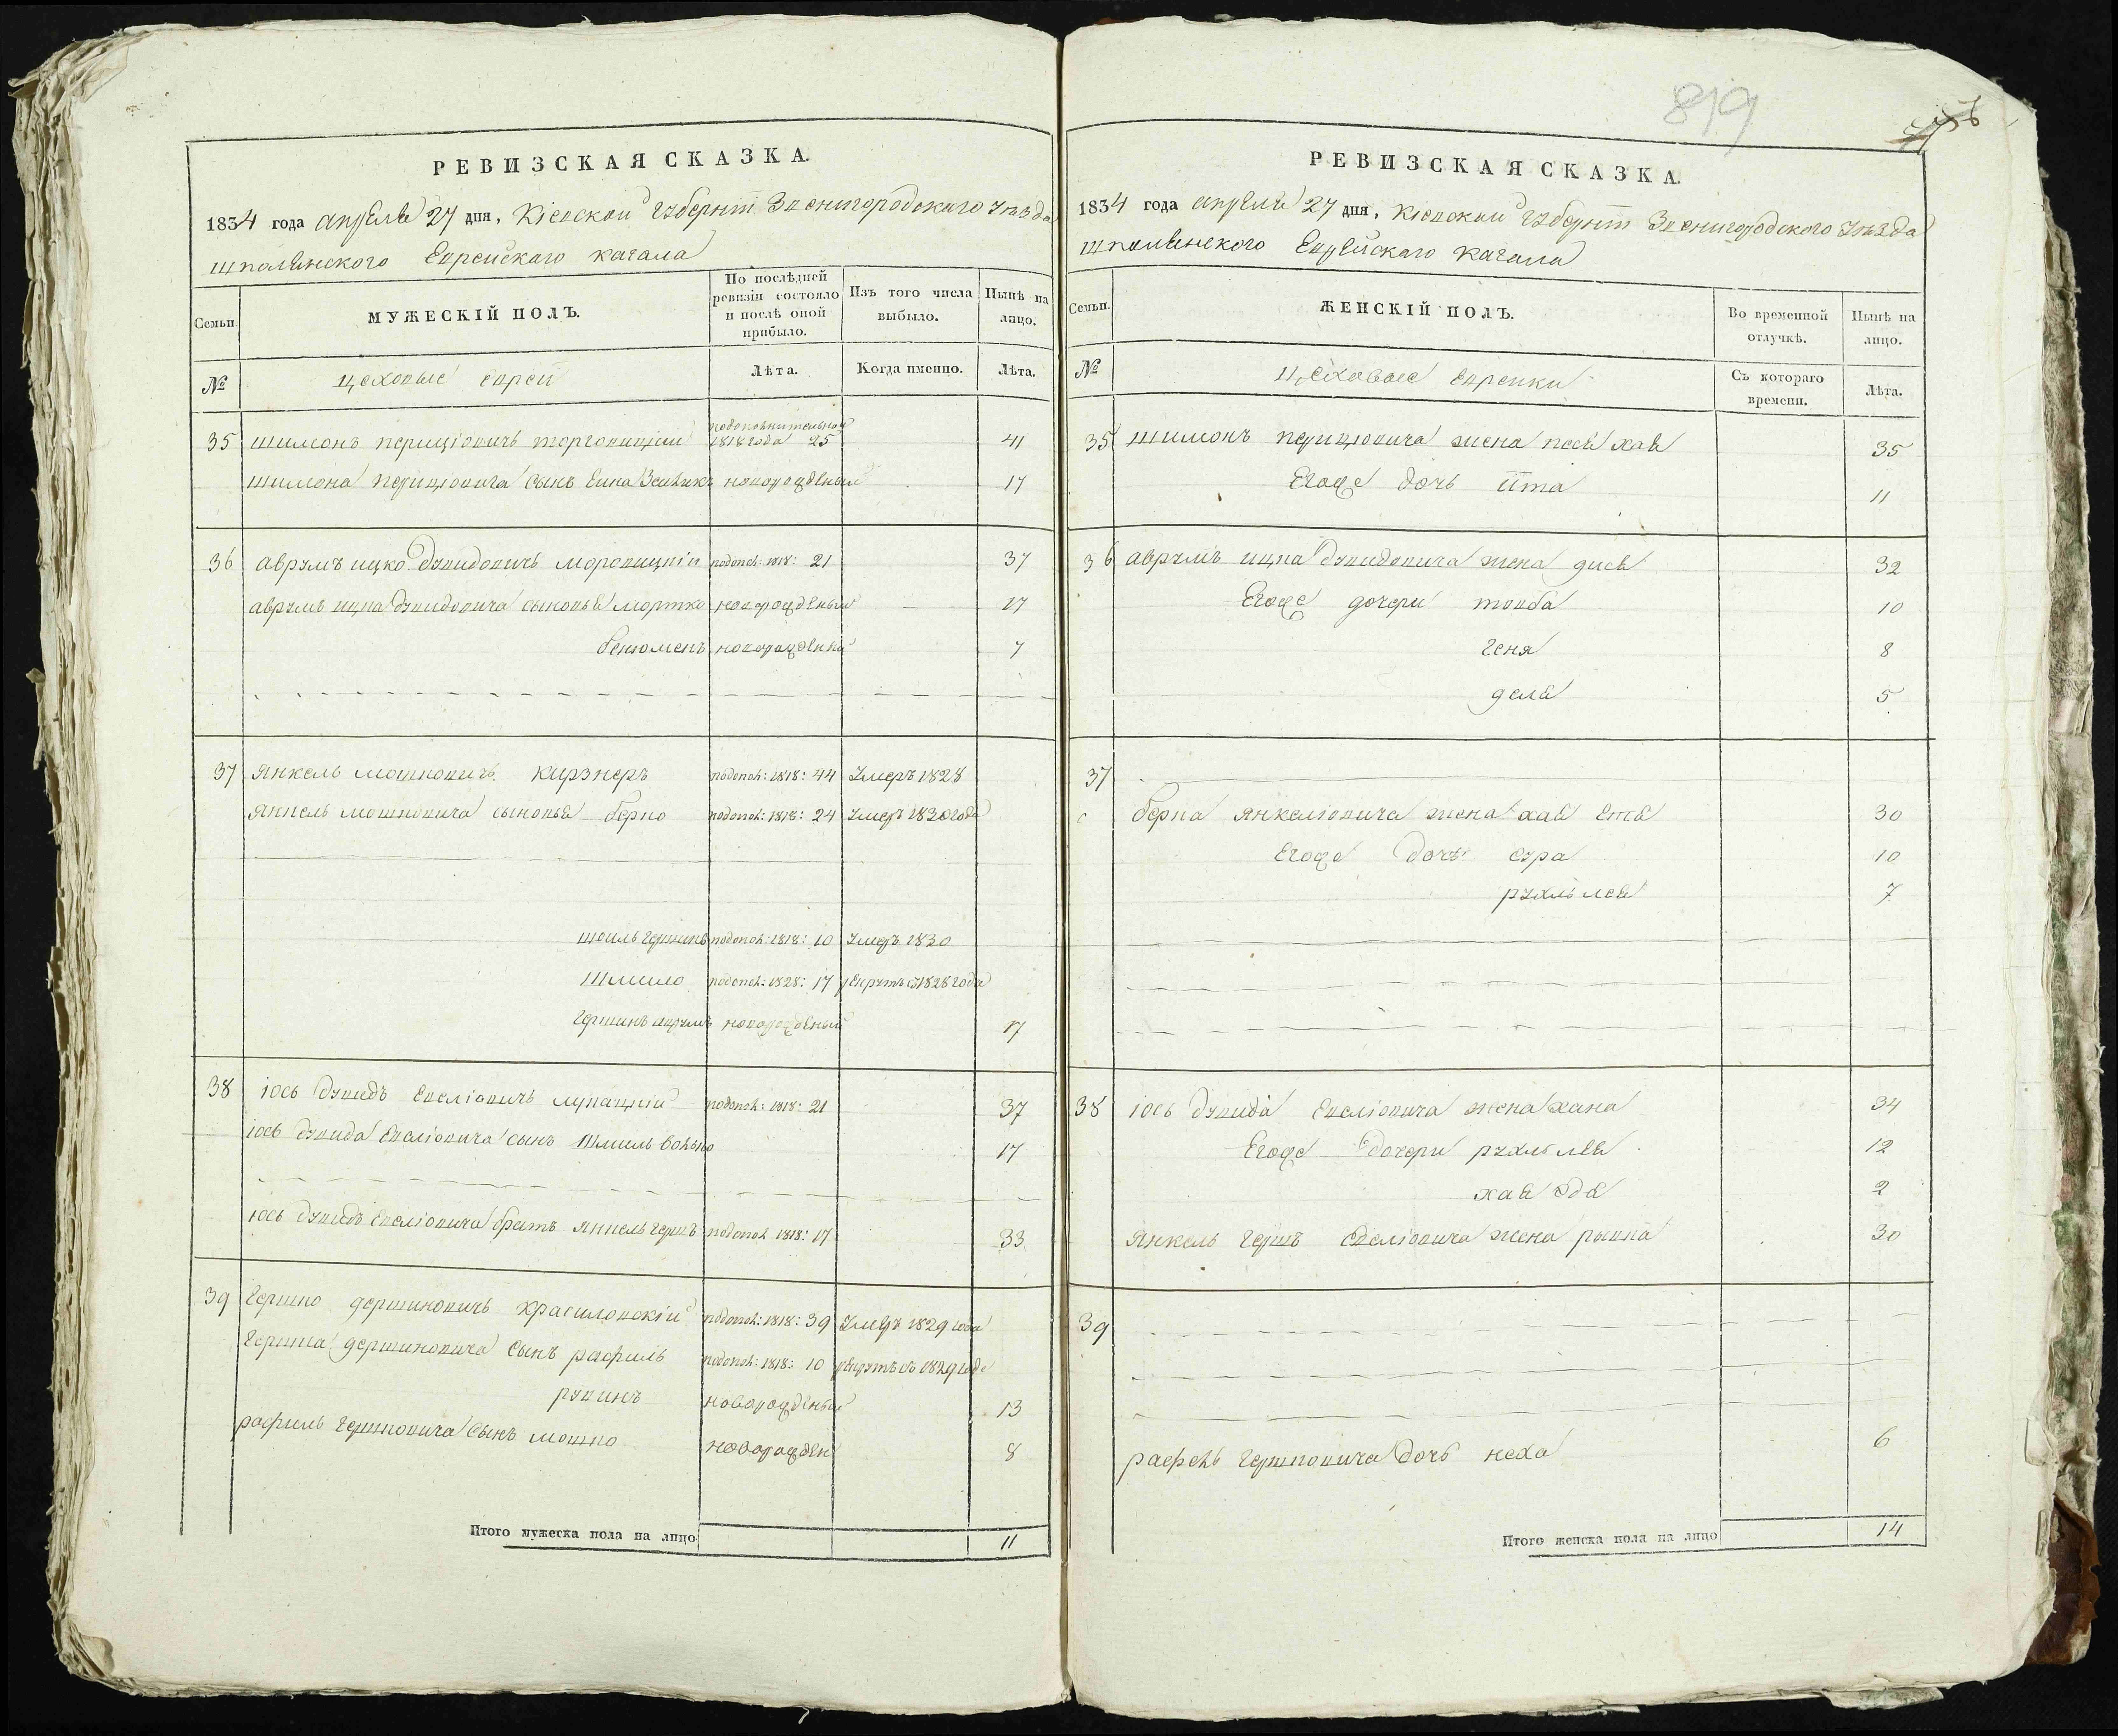 РЕВИЗСКАЯ СКАЗКА.
1834 года апреля 27 дня, Кіевской Губерніи Звенигородскаго Уѣзда
шполянского Еврейскаго кагала
Семьи.
МУЖЕСКІЙ ПОЛЪ.
По послѣдней ревизіи состояло и послѣ оной прибыло.
Изъ того числа выбыло.
Нынѣ на лицо.
№
цеховые евреи
Лѣта.
Когда именно.
Лѣта.
35 шимонъ периціовичъ торговицкій подополнительной 1818 года 25 41
шимона периціовича сынъ новорожденный 17
36 аврумъ ицко Дувидовичъ моровицкій подопол: 1818: 21 37
аврумъ ицка Дувидовича сыновья мортко новорожденный 17
бенюменъ новорожденный 7
37 янкель мошковичъ кирзнеръ подопол: 1818: 44 Умеръ 1828
янкель мошковича сыновья берко подопол: 1818: 24 Умеръ 1830 года
подопол: 1818: 10 Умеръ 1830
Шмило подопол: 1828: 17 рекрутъ съ 1828 года
новорожденный 17
38 іось дувидъ евеліовичъ лупацкій подопол: 1818: 21 37
іось дувида евеліовича сынъ Шмиль 17
іось дувидъ евеліовича братъ янкель гершъ подопол 1818: 17 33
39 Гершко красиловскій подопол: 1818: 39 Умеръ 1829 года
Гершка сынъ рафиль подопол: 1818: 10 рекрутъ съ 1829 года
рувинъ новорожденный 13
рафиль гершковича сынъ мошко новорожден 8
Итого мужеска пола на лицо 11
819
РЕВИЗСКАЯ СКАЗКА.
1834 года апреля 27 дня, Кіевской Губерніи Звенигородского Уѣзда
шполянского Еврейскаго кагала
Семьи.
ЖЕНСКІЙ ПОЛЪ.
Во временной отлучкѣ.
Нынѣ на лицо.
№
Цеховые еврейки
Съ котораго времени.
Лѣта.
35 шимонъ периціовича жена песя хая 35
Егоже дочь ита 11
36 аврумъ ицка Дувидовича жена дися 32
Егоже дочери товба 10
геня 8
деля 5
37
берка янкеліовича жена хая етя 30
Егоже дочь сура 10
рухль лея 7
38 іось дувида евеліовича жена хана 34
Егоже дочери рухль лея 12
хая 2
янкель гершъ евеліовича жена ривка 30
39
рафель гершковича дочь неха 6
Итого женска пола на лицо 14